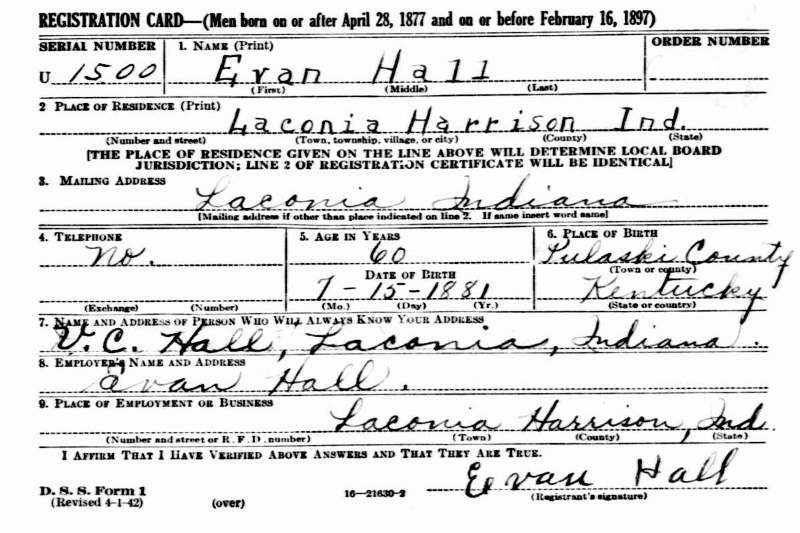 REGISTRATION CARD—(Men born on or after April 28, 1877 and on or before February 16, 1897)
SERIAL NUMBER 1. NAME (Print) ORDER NUMBER
U 1500 Evan Hall
(First) (Middle) (Last)
2 PLACE OF RESIDENCE (Print)
Laconia Harrison Ind.
(Number and street) (Town, township, village, or city) (County) (State)
[THE PLACE OF RESIDENCE GIVEN ON THE LINE ABOVE WILL DETERMINE LOCAL BOARD
JURISDICTION; LINE 2 OF REGISTRATION CERTIFICATE WILL BE IDENTICAL]
3. MAILING ADDRESS
Laconia Indiana
[Mailing address if other than place indicated on line 2. If same insert word same]
4. TELEPHONE 5. AGE IN YEARS 6. PLACE OF BIRTH
no. 60 Pulaski County
DATE OF BIRTH (Town or county)
7-15-1881 Kentucky
(Exchange) (Number) (Mo.) (Day) (Yr.) (State or country)
7. NAME AND ADDRESS OF PERSON WHO WILL ALWAYS KNOW YOUR ADDRESS
V. C. Hall, Laconia, Indiana.
8. EMPLOYER'S NAME AND ADDRESS
Evan Hall.
9. PLACE OF EMPLOYMENT OR BUSINESS
Laconia Harrison, Ind.
(Number and street or R. F. D. number) (Town) (County) (State)
I AFFIRM THAT I HAVE VERIFIED ABOVE ANSWERS AND THAT THEY ARE TRUE.
Evan Hall
D. S. S. Form 1 16—21630-2 (Registrant's signature)
(Revised 4-1-42) (over)